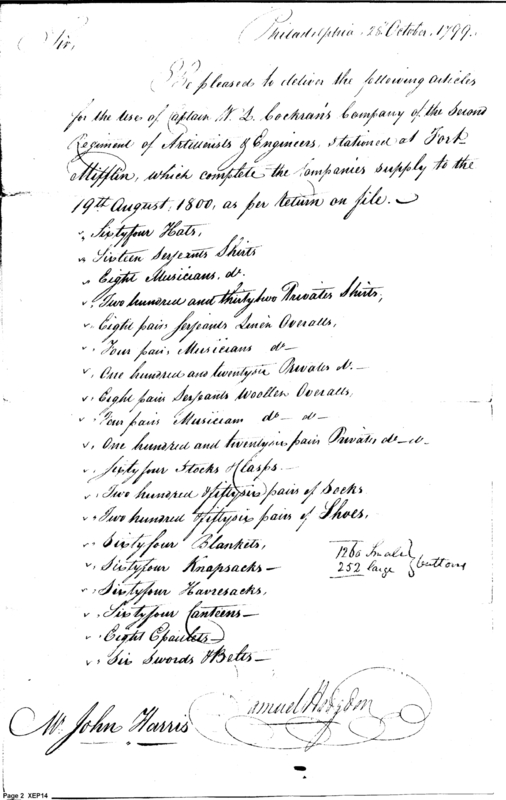 Philadelphia 28 October, 1799.
Sir,
Be pleased to deliver the following articles
for the use of Captain W. L. Cochran's Company of the Second
Regiment of Artillerists & Engineers, stationed at Fort
Mifflin, which complete the Companies supply to the
19th August, 1800, as per return on file. —
Sixtyfour Hats,
Sixteen Serjeants Shirts
Eight Musicians, do.
Two hundred and thirtytwo Privates Shirts,
Eight pairs Serjeants Linen Overalls,
Four pairs Musicians do —
One hundred and twentysix Privates do —
Eight pair Serjeants Woollen Overalls,
Four pairs Musicians do — do —
One hundred and twentysix pairs Privates do — do —
Sixtyfour Stocks & Clasps —
Two hundred & fiftysix pairs of Socks
Two hundred & fiftysix pairs of Shoes,
Sixtyfour Blankets,
Sixtyfour Knapsacks —
1260 Small
252 large
buttons
Sixtyfour Haversacks,
Sixtyfour Canteens —
Eight Epaulets —
Six Swords & Belts —
Samuel Hodgdon
Mr. John Harris
Page 2 XEP14